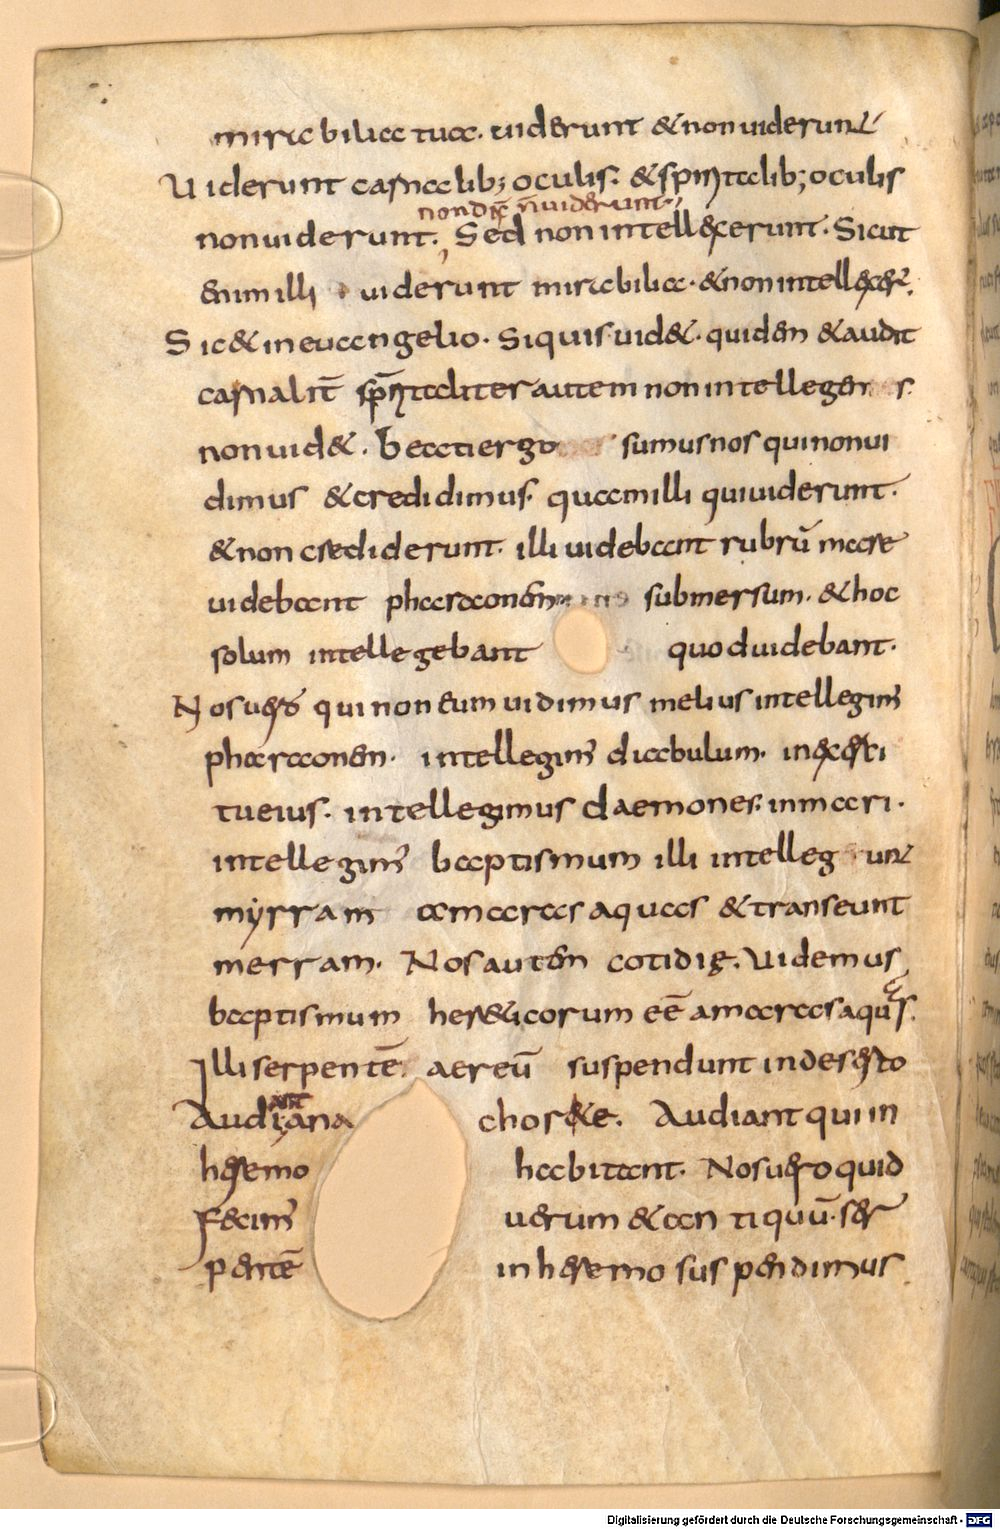 mirabilia tua. uiderunt & non uiderunt
Uiderunt carnalib; oculis. & spiritalib; oculis
non dix̄ n̄ uiderunt
non uiderunt. Sed non intellexerunt. Sicut
enim illi uiderunt mirabilia. & non intellexer̄.
Sic & in euangelio. Siquis uid&. quidem & audit
carnalit̄ sp̄ritaliter autem non intellegens
non uid&. beati ergo sumus nos qui non ui
dimus & credidimus. quam illi qui uiderunt.
& non crediderunt. illi uidebant rubrū mare
uidebant pharaonem submersum. & hoc
solum intellegebant quod uidebant.
Nos uero qui non eum uidimus melius intellegim̄
pharaonem. intellegim̄ diabulum. in exerci
tu eius. intellegimus daemones. in mari.
intellegim̄ baptismum illi intellegunt
myrram amaras aquas & transeunt
merram. Nos autem cotidię. Uidemus
baptismum her&icorum eē amaras aquas.
Illi serpentē aereū suspendunt in deserto
Audiana chor&e. Audiant qui in
ant
heremo habitant. Nos uero quid
fecim̄ uerum & an tiquū. ser
pentē in heremo suspendimus
Digitalisierung gefördert durch die Deutsche Forschungsgemeinschaft - DFG